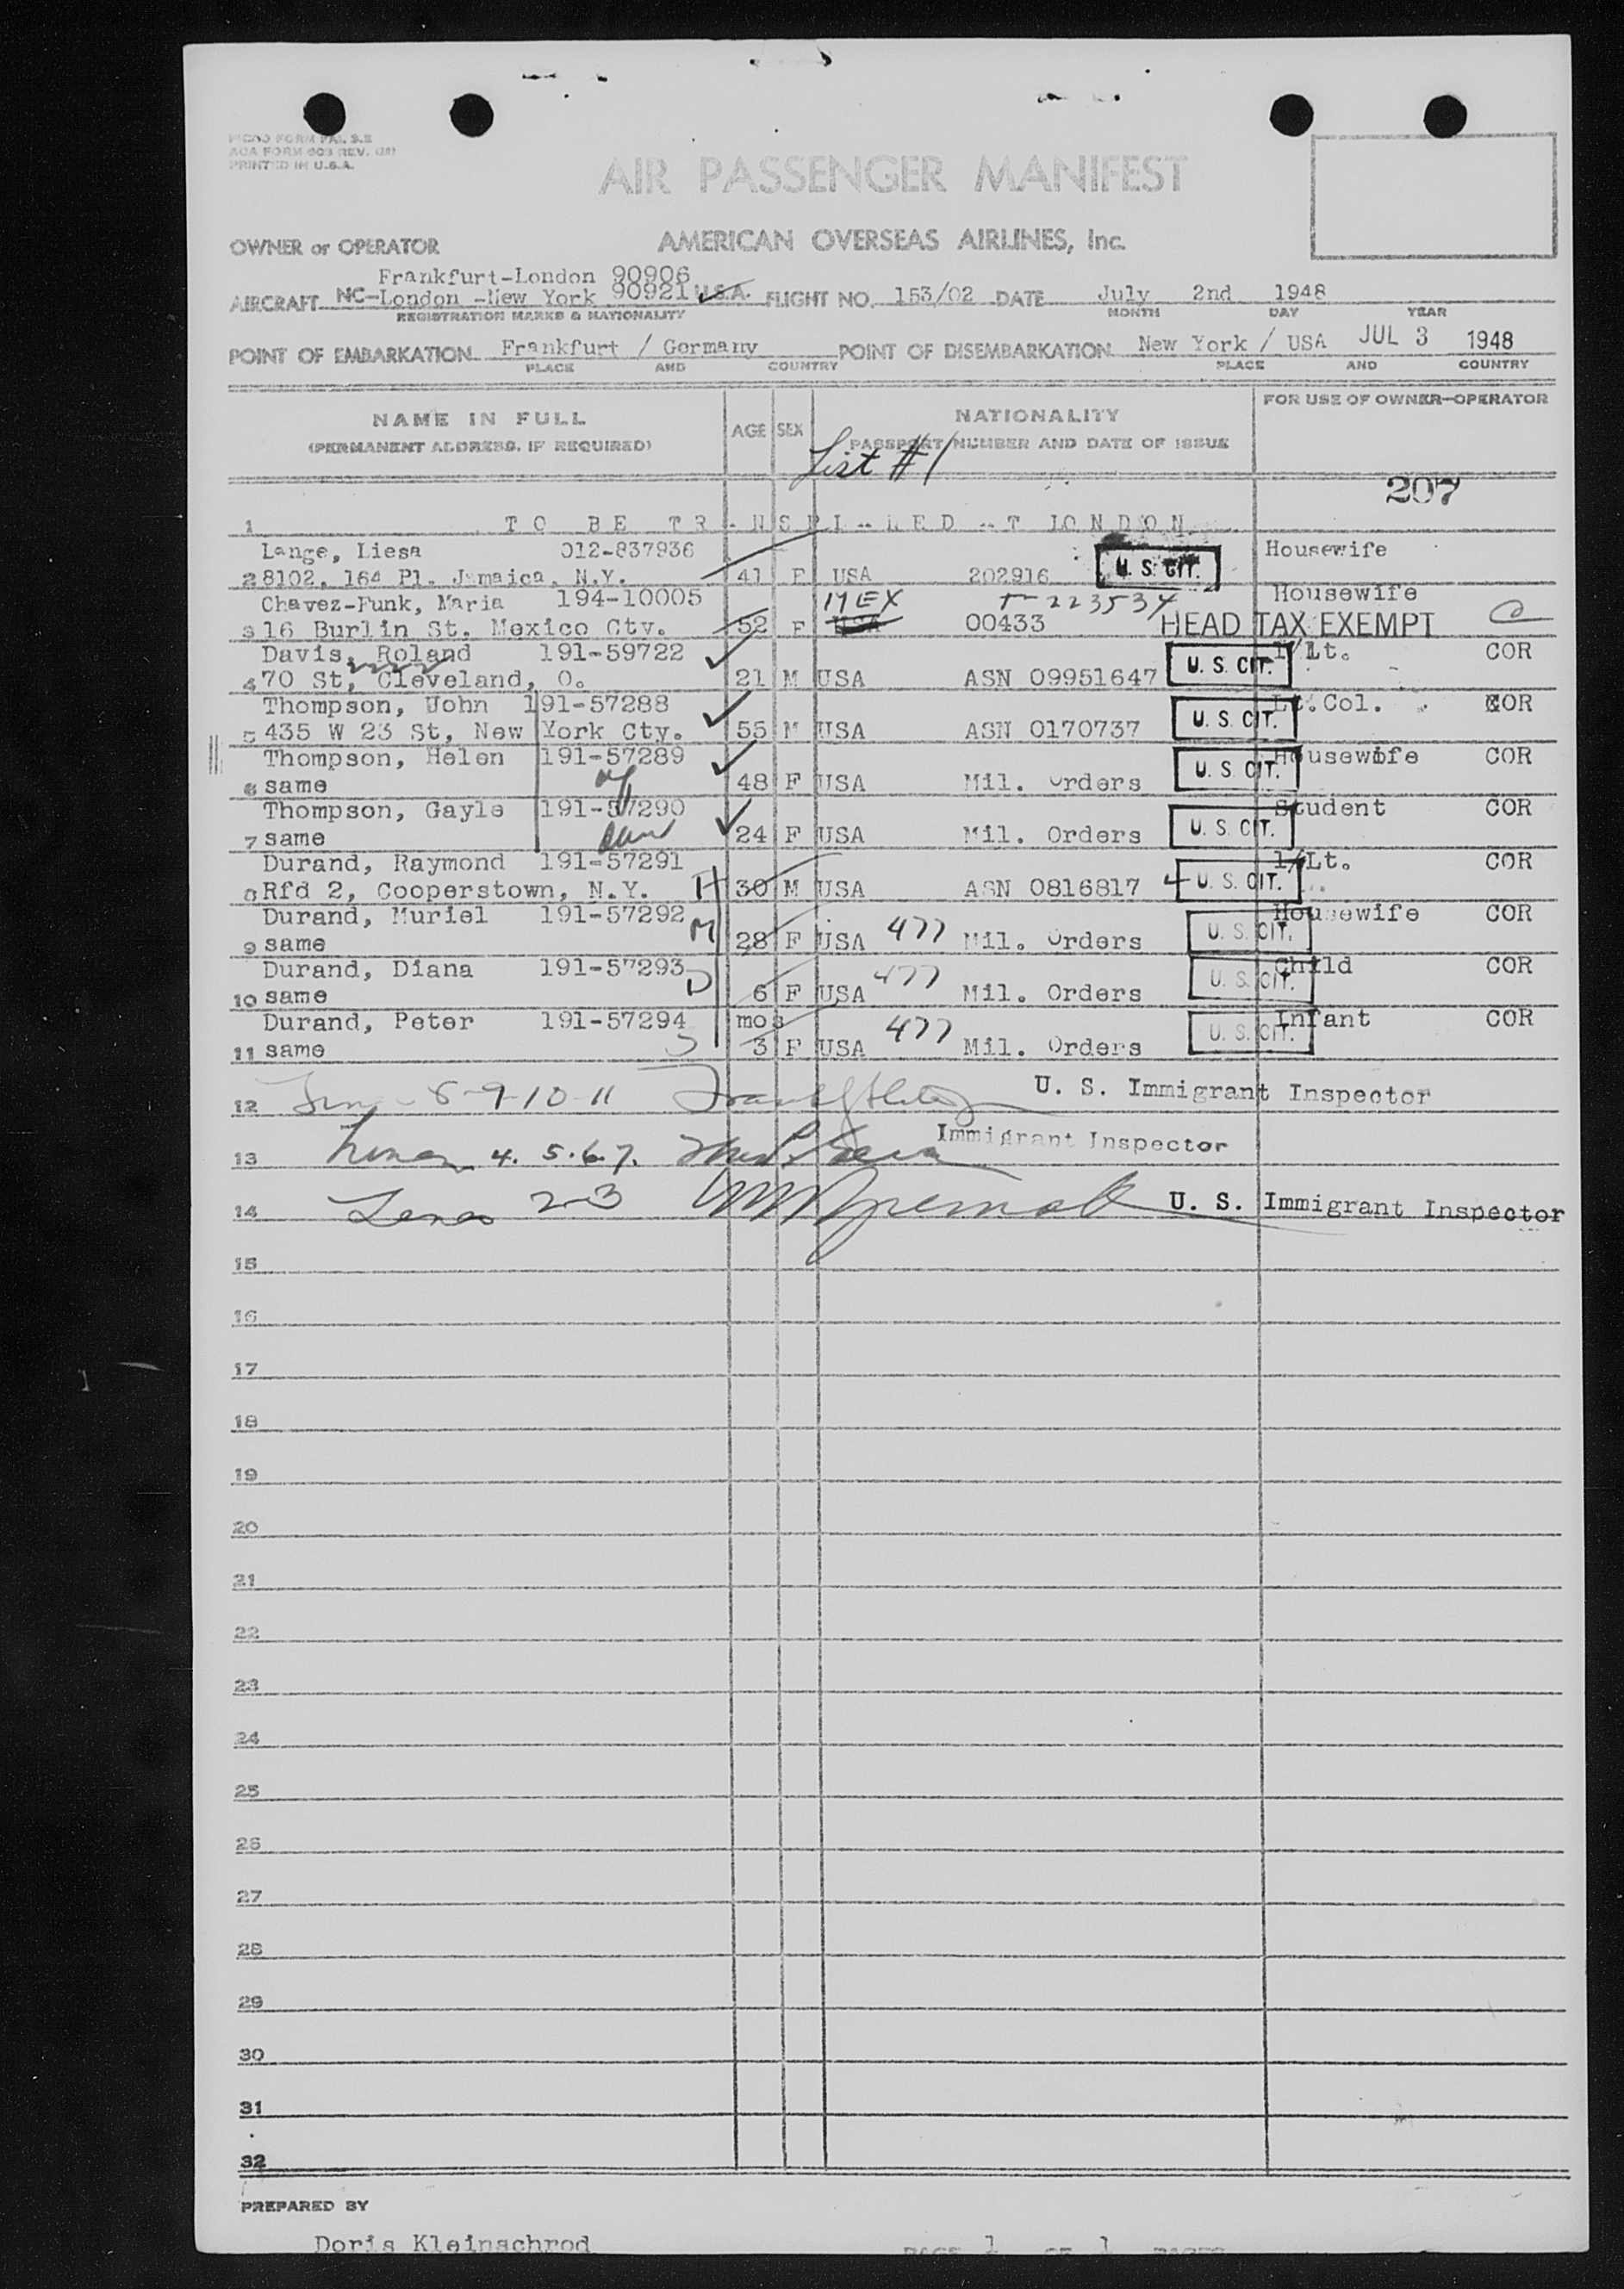 PICAO FORM PAI, S.2
AOA FORM 603 REV.
PRINTED IN U.S.A.
AIR PASSENGER MANIFEST
OWNER or OPERATOR AMERICAN OVERSEAS AIRLINES, Inc.
Frankfurt-London 90906
AIRCRAFT NC-London -New York 90921 U.S.A. FLIGHT NO. 153/02 DATE July 2nd 1948
REGISTRATION MARKS & NATIONALITY MONTH DAY YEAR
POINT OF EMBARKATION Frankfurt / Germany POINT OF DISEMBARKATION New York / USA JUL 3 1948
PLACE AND COUNTRY PLACE AND COUNTRY
NAME IN FULL AGE SEX NATIONALITY FOR USE OF OWNER-OPERATOR
(PERMANENT ADDRESS, IF REQUIRED) PASSPORT NUMBER AND DATE OF ISSUE
List #1
207
1 TO BE TR-NSPI--NED -T LONDON
Lange, Liesa 012-837936 Housewife
2 8102, 164 Pl. Jamaica, N.Y. 41 F USA 202916 U. S. CIT.
Chavez-Funk, Maria 194-10005 MEX T-223534 Housewife
3 16 Burlin St. Mexico Cty. 52 F USA 00433 HEAD TAX EXEMPT
Davis, Roland 191-59722 1/Lt. COR
4 70 St, Cleveland, O. 21 M USA ASN 09951647 U. S. CIT.
Thompson, John 191-57288 Lt.Col. COR
5 435 W 23 St, New York Cty. 55 M USA ASN 0170737 U. S. CIT.
Thompson, Helen 191-57289 Housewife COR
6 same 48 F USA Mil. Orders U. S. CIT.
Thompson, Gayle 191-57290 Student COR
7 same 24 F USA Mil. Orders U. S. CIT.
Durand, Raymond 191-57291 1/Lt. COR
8 Rfd 2, Cooperstown, N.Y. H 30 M USA ASN 0816817 U. S. CIT.
Durand, Muriel 191-57292 Housewife COR
9 same M 28 F USA 477 Mil. Orders U. S. CIT.
Durand, Diana 191-57293 Child COR
10 same D 6 F USA 477 Mil. Orders U. S. CIT.
Durand, Peter 191-57294 mos Infant COR
11 same S 3 F USA 477 Mil. Orders U. S. CIT.
12 8-9-10-11 U. S. Immigrant Inspector
Immigrant Inspector
13 4. 5.6.7.
14 2-3 U. S. Immigrant Inspector
15
16
17
18
19
20
21
22
23
24
25
26
27
28
29
30
31
32
PREPARED BY
Doris Kleinschrod PAGE 1 OF 1 PAGES